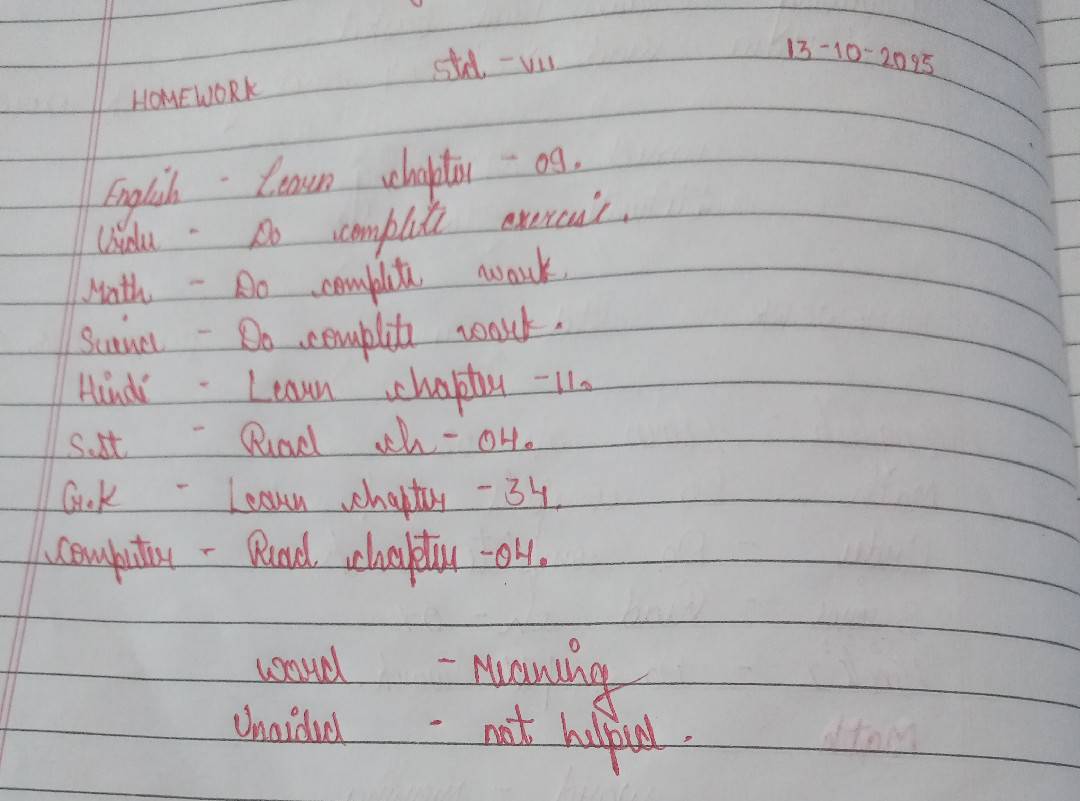 HOMEWORK Std - VII 13-10-2025
English - Learn chapter - 09.
Urdu - Do complete exercise.
Math - Do complete work.
Science - Do complete work.
Hindi - Learn chapter - 11.
S.St - Read ch - 04.
G.K - Learn chapter - 34.
Computer - Read chapter - 04.
word - Meaning
Unaided - not helped.